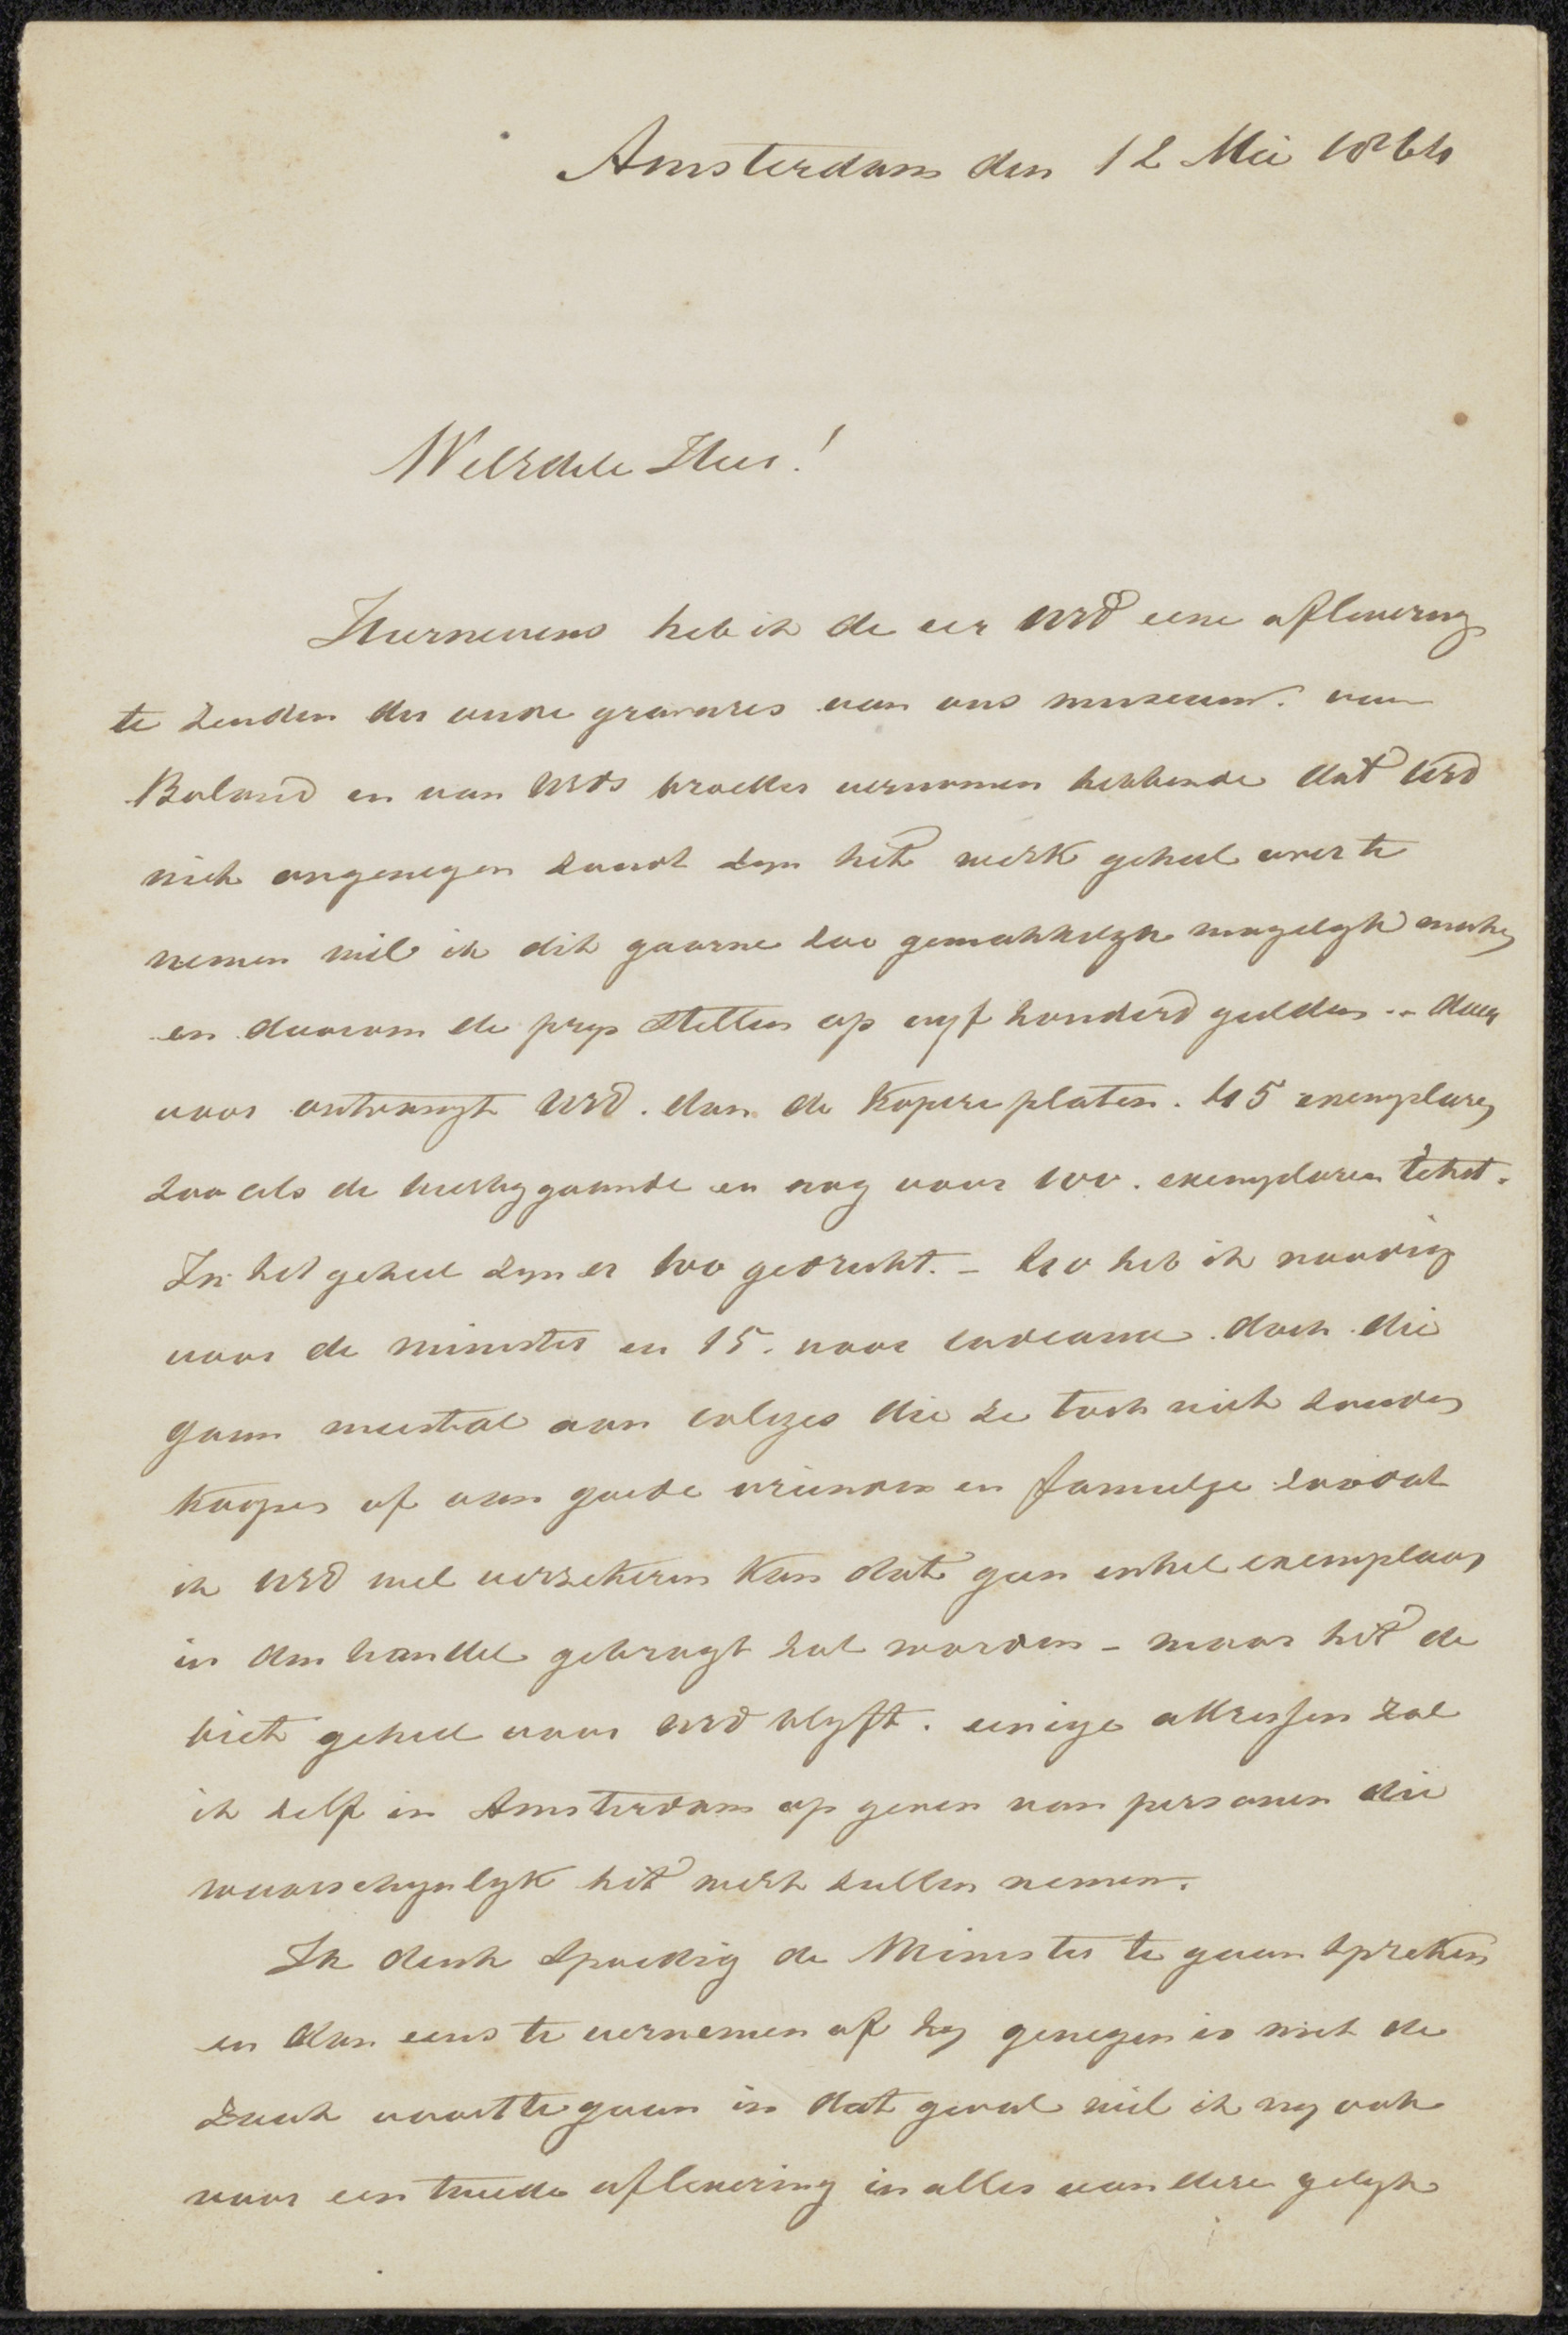 Amsterdam den 12 Mei 1864
WelEdele Heer!
Hiernevens heb ik de eer UEd eene aflevering
te zenden der oude gravures van ons museum. van
Boland en van UEds broeder vernomen hebbende dat UEd
niet ongenegen zoudt zyn het werk geheel over te
nemen wil ik dit gaarne zoo gemakkelyk mogelyk maken
en daarom de prys stellen op vyf honderd gulden .- daar
voor ontvangt UEd. dan de Kopere platen. 45 exemplaren
zoo als de hierbygaande en nog voor 100. exemplaren tekst.
In het geheel zyn er 100 gedrukt. - 40 heb ik noodig
voor de minister en 15. voor cadeaux. doch die
gaan meestal aan collegas die ze toch niet zouden
koopen of aan goede vrienden en familje zoodat
ik UEd wel verzekeren kan dat geen enkel exemplaar
in den handel gebragt zal worden - maar het de
biet geheel voor UEd blyft. eenige adressen zal
ik zelf in Amsterdam op geven van personen die
waarschynlyk het werk zullen nemen.
Ik denk spoedig de Minister te gaan spreken
en dan eens te vernemen of hy genegen is met de
zaak voort te gaan in dat geval wil ik my ook
voor een tweede aflevering in alles aan deze gelyk